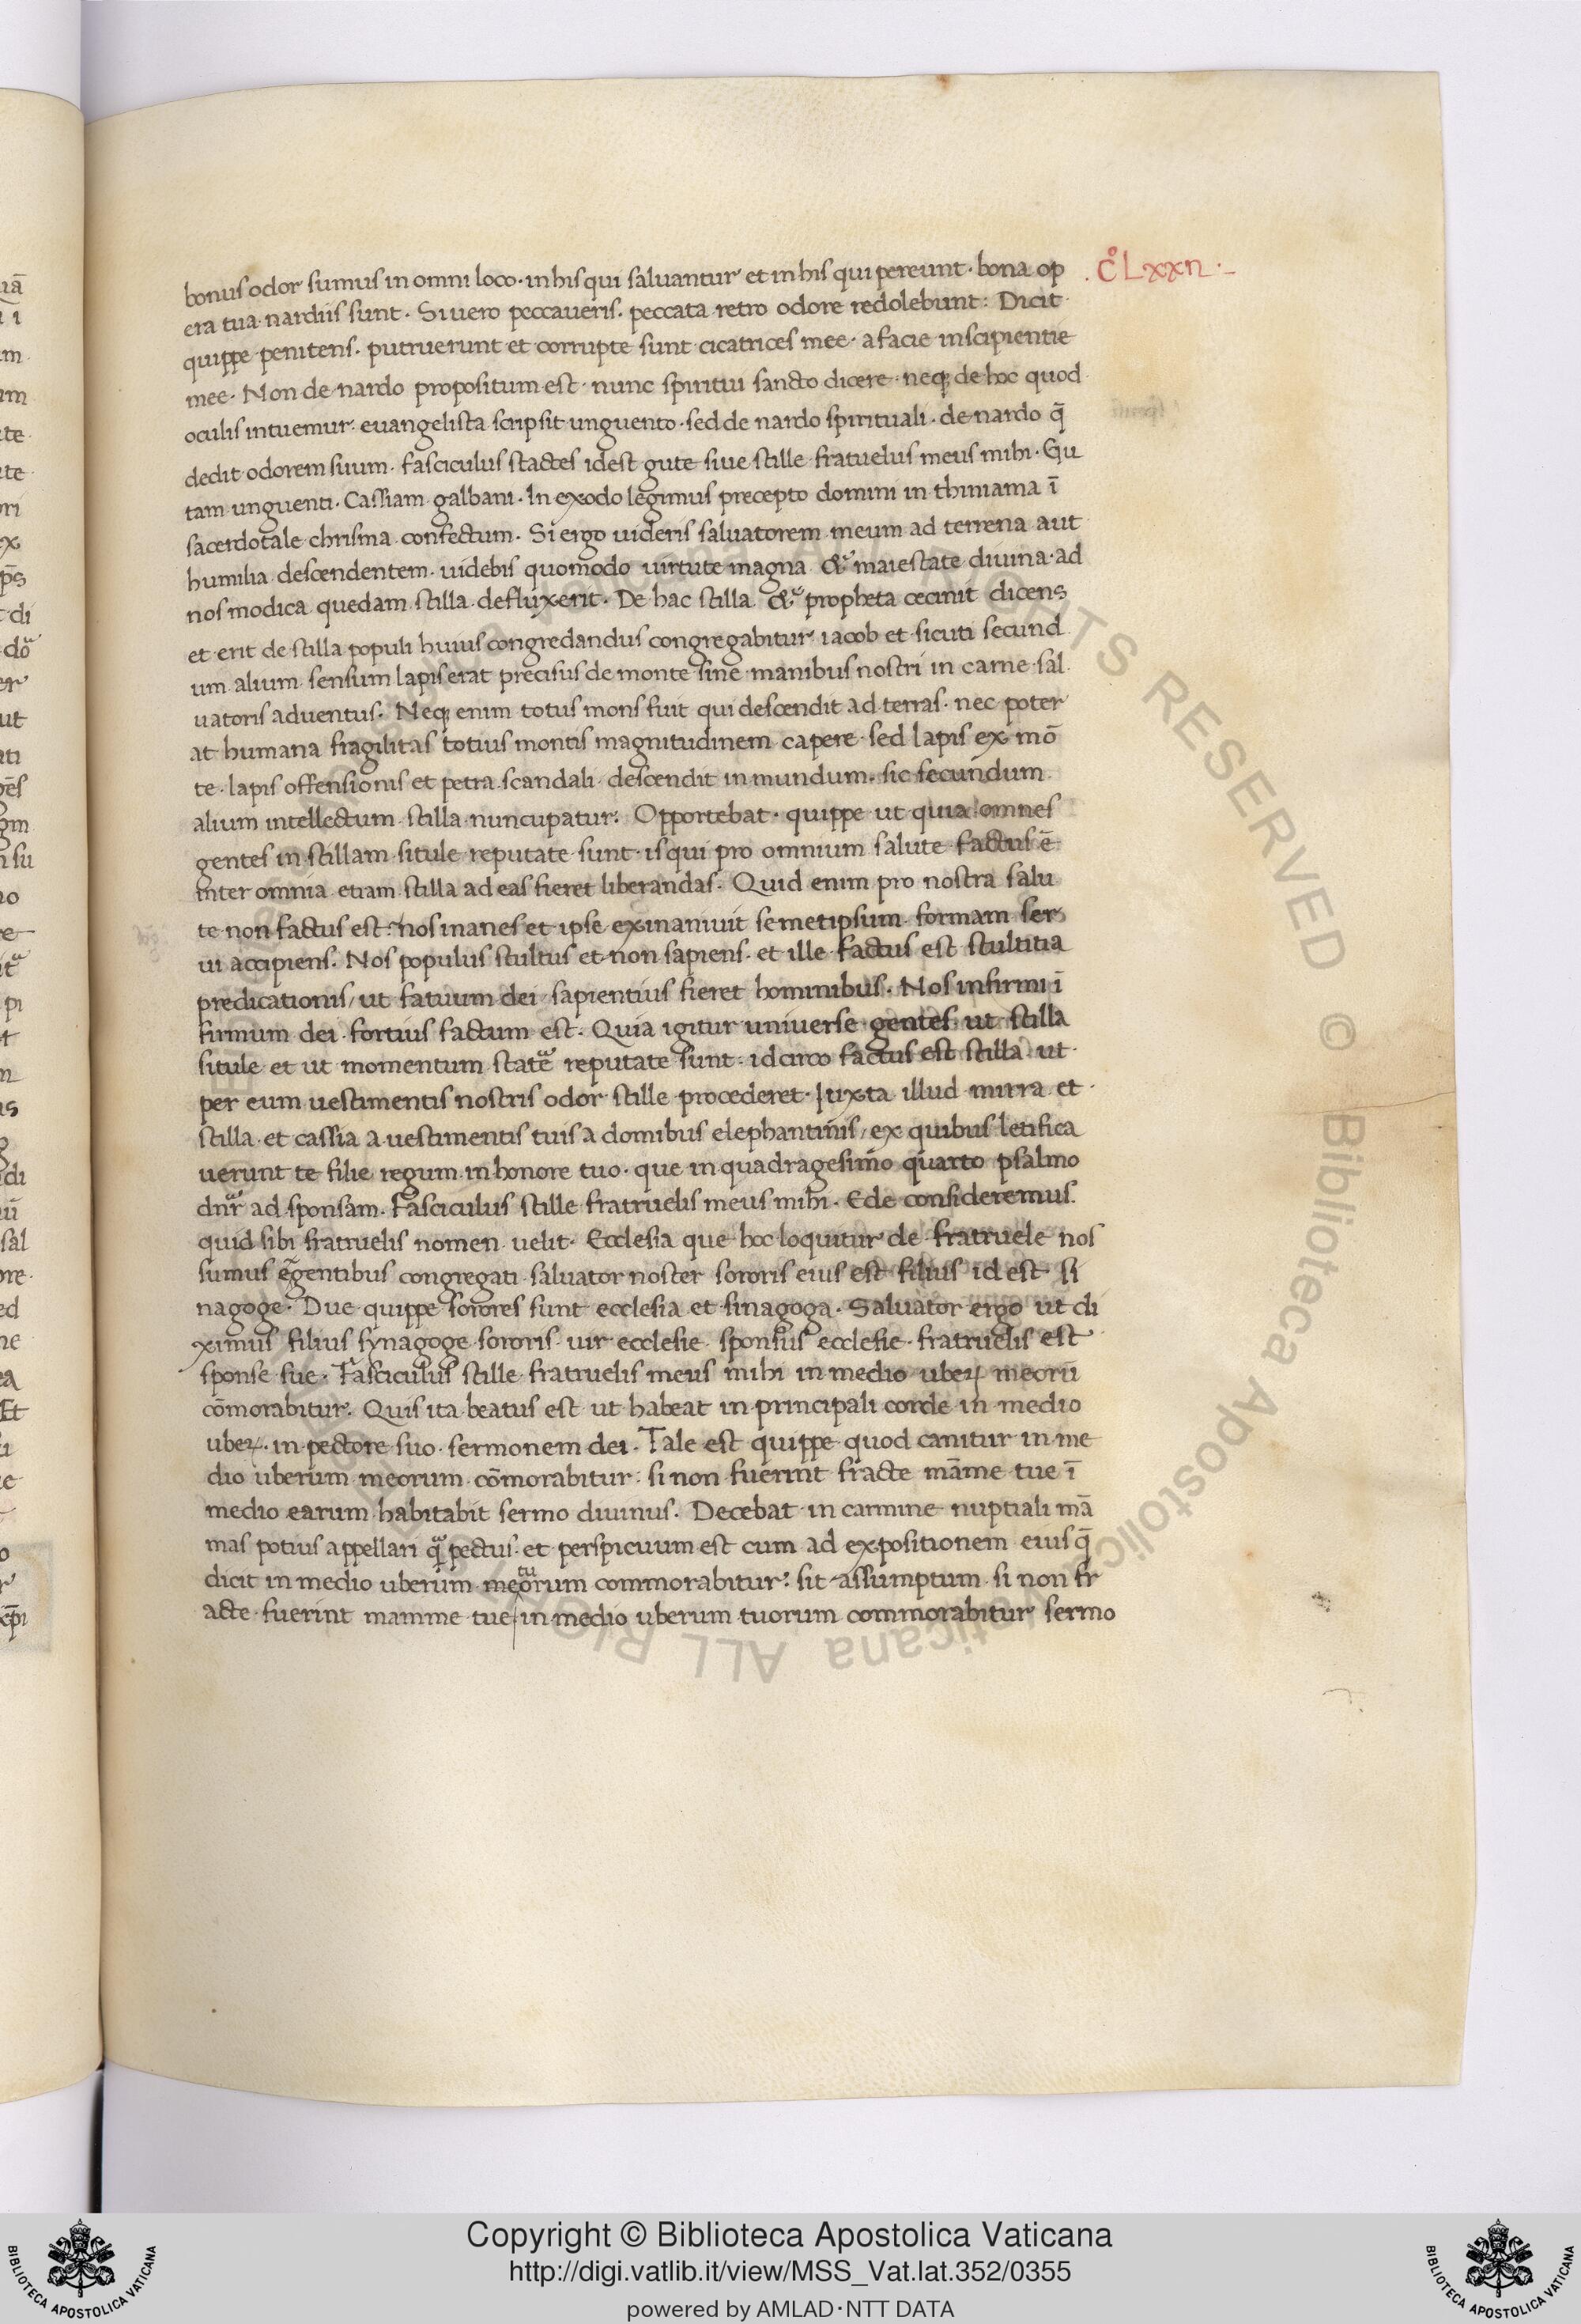 bonus odor sumus in omni loco · in his qui saluantur et in his qui pereunt · bona op
era tua nardus sunt · Si uero peccaueris · peccata retro odore redolebunt : Dicit
quippe penitens · putruerunt et corrupte sunt cicatrices mee · a facie inscipientie
mee · Non de nardo propositum est · nunc spiritui sancto dicere · neq; de hoc quod
oculis intuemur · euangelista scripsit unguento · sed de nardo spirituali · de nardo q̄
dedit odorem suum · fasciculus stactes idest gute siue stille fratuelus meus mihi · Gu
tam unguenti · Cassiam galbani · In exodo legimus precepto domini in thimiama ī
sacerdotale chrisma confectum · Si ergo uideris saluatorem meum ad terrena aut
humilia descendentem · uidebis quomodo uirtute magna & maiestate diuina · ad
nos modica quedam stilla defluxerit · De hac stilla & propheta cecinit dicens
et erit de stilla populi huius congredandus congregabitur iacob et sicuti secund
um alium sensum lapis erat precisus de monte sine manibus nostri in carne sal
uatoris aduentus · Neq; enim totus mons fuit qui descendit ad terras · nec poter
at humana fragilitas totius montis magnitudinem capere · sed lapis ex mō
te · lapis offensionis et petra scandali descendit in mundum · sic secundum
alium intellectum stilla nuncupatur : Opportebat · quippe ut quia omnes
gentes in stillam situle reputate sunt · is qui pro omnium salute factus ē
inter omnia etiam stilla ad eas fieret liberandas · Quid enim pro nostra salu
te non factus est · nos inanes et ipse exinaniuit semetipsum formam ser
ui accipiens · Nos populus stultus et non sapiens · et ille factus est stultitia
predicationis / ut fatuum dei sapientius fieret hominibus · Nos infirmi ī
firmum dei fortius factum est · Quia igitur uniuerse gentes ut stilla
situle et ut momentum statē reputate sunt · idcirco factus est stilla ut
per eum uestimentis nostris odor stille procederet · Iuxta illud mirra et
stilla et cassia a uestimentis tuis a domibus elephantinis / ex quibus letifica
uerunt te filie regum in honore tuo · que in quadragesimo quarto psalmo
dnr̄ ad sponsam · Fasciculus stille fratruelis meus mihi · Ede consideremus
quid sibi fratruelis nomen uelit · Ecclesia que hoc loquitur de fratruele nos
sumus ēgentibus congregati saluator noster sororis eius est filius id est · si
nagoge · Due quippe sorores sunt ecclesia et sinagoga · Saluator ergo ut di
ximus filius synagoge sororis · uir ecclesie sponsus ecclesie · fratruelis est
sponse sue · Fasciculus stille fratruelis meus mihi in medio uberꝝ meorū
cōmorabitur · Quis ita beatus est ut habeat in principali corde in medio
uberꝝ · in pectore suo sermonem dei · Tale est quippe quod canitur in me
dio uberum meorum cōmorabitur : si non fuerint fracte māme tue ī
medio earum habitabit sermo diuinus · Decebat in carmine nuptiali mā
mas potius appellari q̄ pectus · et perspicuum est cum ad expositionem eius q̄
dicit in medio uberum meorum commorabitur : sit assumptum si non fr
acte fuerint mamme tue / in medio uberum tuorum commorabitur sermo
Copyright © Biblioteca Apostolica Vaticana
http://digi.vatlib.it/view/MSS_Vat.lat.352/0355
powered by AMLAD·NTT DATA
BIBLIOTECA APOSTOLICA VATICANA
BIBLIOTECA APOSTOLICA VATICANA